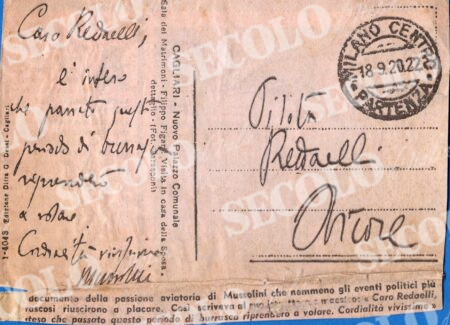 Caro Redaelli,
è inteso
che passato questo
periodo di burrasca
riprenderò
a volare
Cordialità vivissime
Mussolini
CAGLIARI - Nuovo Palazzo Comunale
Sala dei Matrimoni - Filippo Figari: Visita in casa della sposa.
dettaglio. (Fot.
1-4043 - Edizione Ditta G. Dessì - Cagliari
MILANO CENTRO
18.9.20.22
PARTENZA
Pilota
Redaelli
Arcore
documento della passione aviatoria di Mussolini che nemmeno gli eventi politici più
riuscirono a placare. Così scriveva al suo « Caro Redaelli,
che passato questo periodo di burrasca riprenderò a volare. Cordialità vivissime »
SECOLO